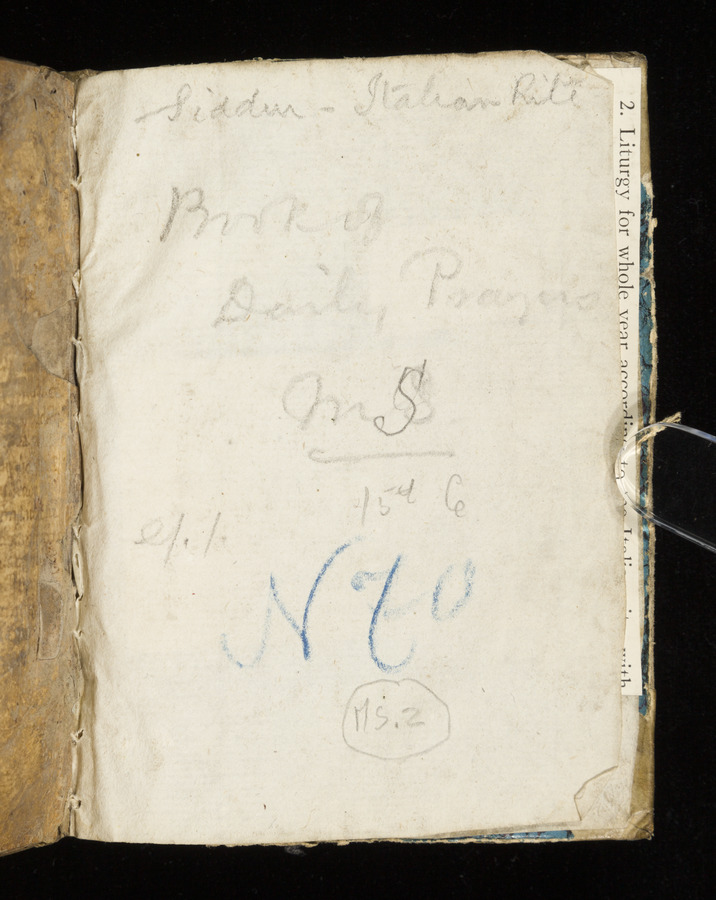 Siddur - Italian Rite
Book of
Daily Prayers
MS
15th C
N 70
MS.2
2. Liturgy for whole year according to Itali with